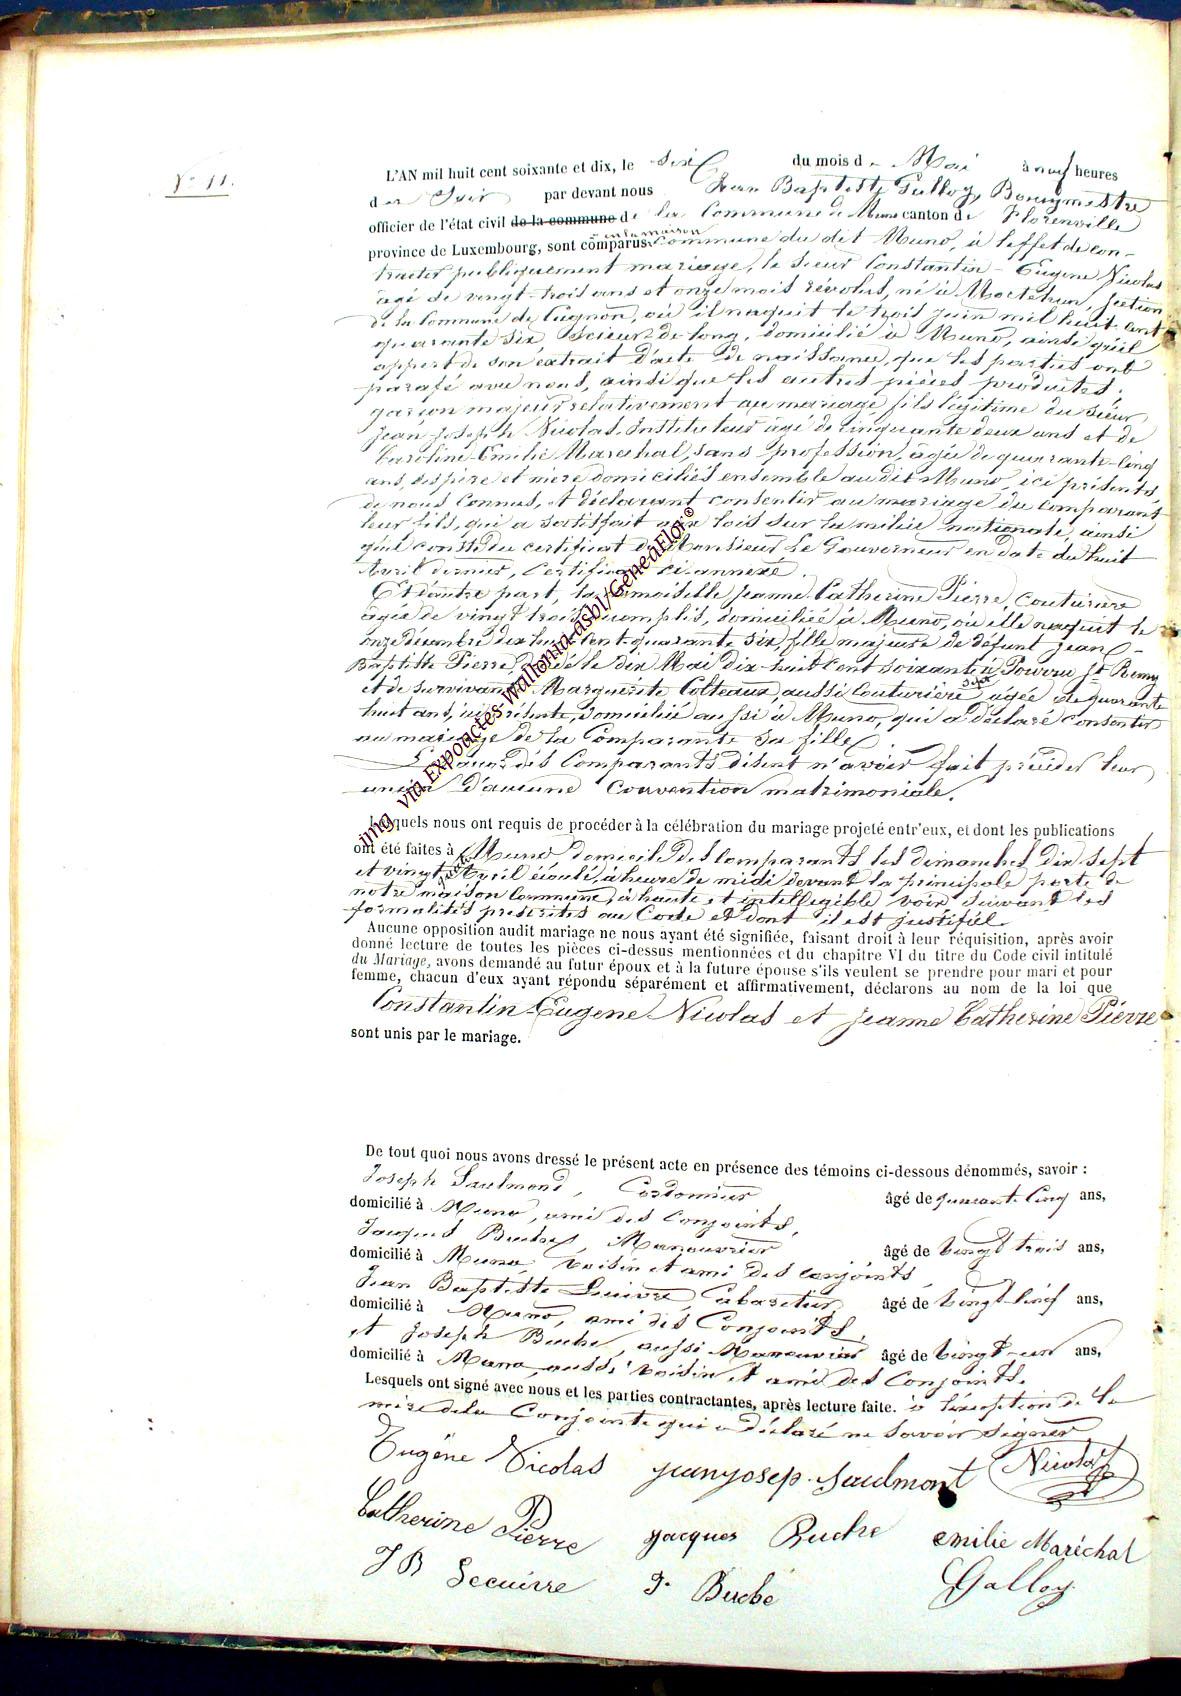 N° 11.
L'AN mil huit cent soixante et dix, le six du mois de Mai à neuf heures
du Soir par devant nous Jean Baptiste Galloy, Bourgmestre
officier de l'état civil de la commune de la Commune de Muno canton de Florenville
province de Luxembourg, sont comparus en la maison Commune du dit Muno, à l'effet de con-
tracter publiquement mariage, le sieur Constantin-Eugene Nicolas
âgé de vingt-trois ans et onze mois révolus, né à Mortehan, section
de la Commune de Cugnon, où il naquit le trois Juin mil huit cent
quarante six, Scieur de long, domicilié à Muno, ainsi qu'il
appert de son extrait d'acte de naissance, que les parties ont
parafé avec nous, ainsi que les autres pièces produites,
garçon majeur relativement au mariage, fils légitime du sieur
Jean Joseph Nicolas, Instituteur âgé de cinquante deux ans et de
Caroline-Emilie Marechal, sans profession, âgée de quarante-cinq
ans, ses père et mère domiciliés ensemble au dit Muno, ici présents,
de nous connus, et déclarant consentir au mariage du comparant
leur fils, qui a satisfait aux lois sur la milice nationale, ainsi
qu'il conste du certificat de Monsieur le Gouverneur en date du huit
Avril dernier, Certificat ci annexé.
Et d'autre part, la demoiselle Jeanne Catherine Pierre, Couturière
âgée de vingt trois accomplis, domiciliée à Muno, où elle naquit le
onze décembre dix huit Cent quarante six, fille majeure de défunt Jean-
Baptiste Pierre, décédé le dix Mai dix-huit Cent soixante sept à Pouvru St Remy
et de survivante Marguerite Colteaux, aussi Couturière, âgée de quarante
huit ans, ici présente, domiciliée aussi à Muno, qui a déclaré consentir
au mariage de la Comparante sa fille.
Lesquels dits Comparants disent n'avoir fait précéder leur
union d'aucune Convention matrimoniale.
Lesquels nous ont requis de procéder à la célébration du mariage projeté entr'eux, et dont les publications
ont été faites à Muno domicile des Comparants les dimanches dix sept
et vingt quatre Avril écoulé, à heure de midi devant la principale porte de
notre maison Commune, à haute et intellegible voix suivant les
formalités prescrites au Code et dont il est justifié.
Aucune opposition audit mariage ne nous ayant été signifiée, faisant droit à leur réquisition, après avoir
donné lecture de toutes les pièces ci-dessus mentionnées et du chapitre VI du titre du Code civil intitulé
du Mariage, avons demandé au futur époux et à la future épouse s'ils veulent se prendre pour mari et pour
femme, chacun d'eux ayant répondu séparément et affirmativement, déclarons au nom de la loi que
Constantin-Eugene Nicolas et Jeanne Catherine Pierre
sont unis par le mariage.
De tout quoi nous avons dressé le présent acte en présence des témoins ci-dessous dénommés, savoir :
Joseph Saulmond, Cordonnier âgé de quarante cinq ans,
domicilié à Muno, ami des Conjoints,
Jacques Buche, Manouvrier âgé de vingt trois ans,
domicilié à Muno, voisin et ami des conjoints,
Jean Baptiste Lecuivre, Cabaretier âgé de vingt-cinq ans,
domicilié à Muno, ami des Conjoints,
et Joseph Buche, aussi Manouvrier âgé de vingt-un ans,
domicilié à Muno, aussi voisin et ami des Conjoints.
Lesquels ont signé avec nous et les parties contractantes, après lecture faite. à l'exception de la
mère de la Conjointe qui a déclaré ne savoir signer
Eugéne Nicolas jean josep. Saulmont Nicolas
Catherine Pierre jacques Buche emilie Maréchal
J B Lecuivre J. Buche Galloy
img via Expoactes-Wallonia-asbl/GeneaEloi©